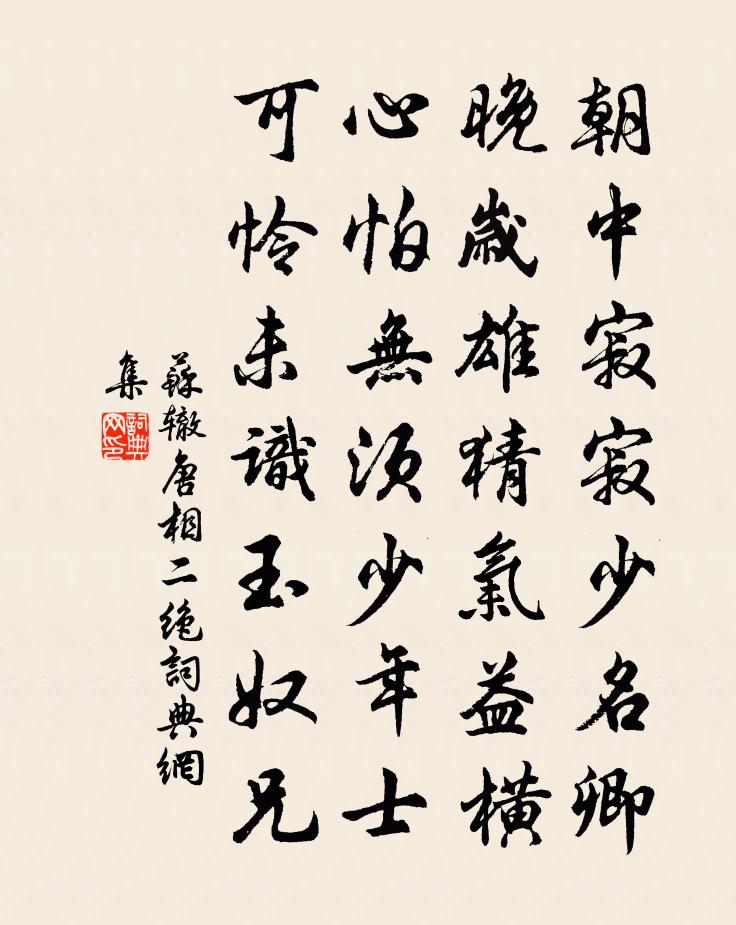 朝中寂寂少名卿
晚歲雄猜氣益橫
心怕無須少年士
可憐未識玉奴兄
蘇辙唐相二绝詞典網
集
詞典网印